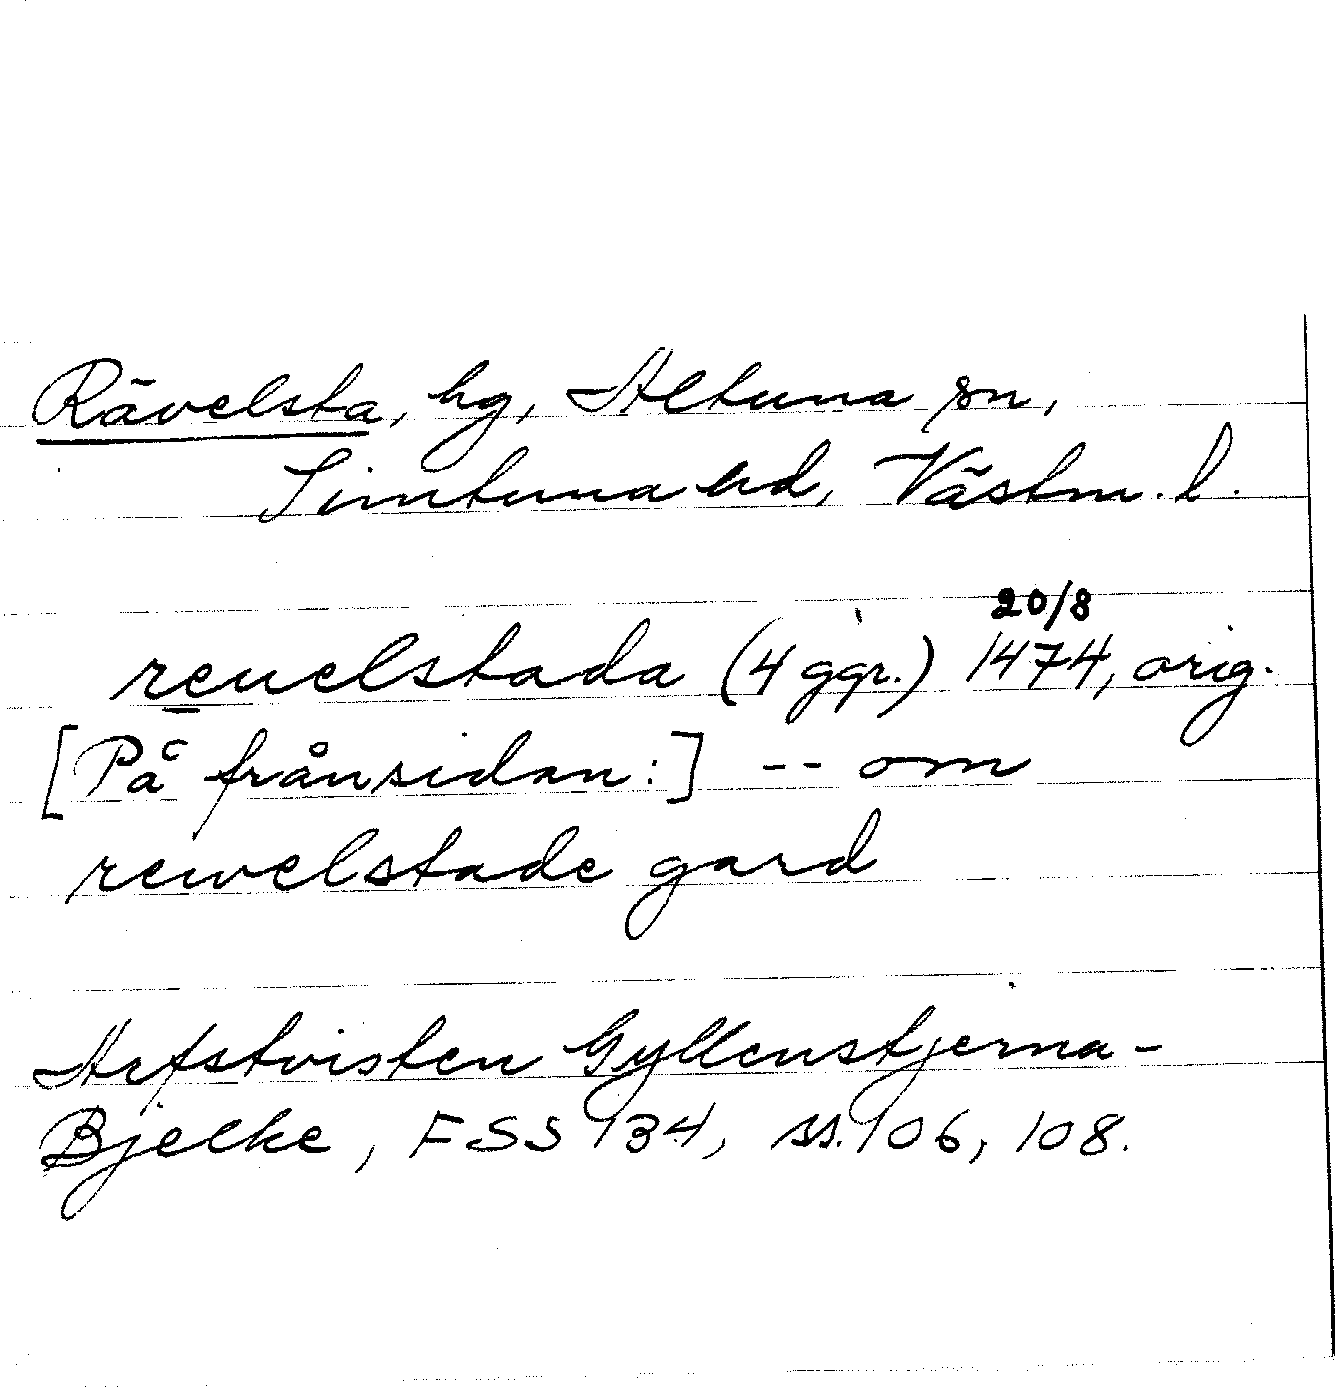 Rävelsta, hg, Altuna sn,
Simtuna hd, Västm. l.
20/8
reuelstada (4 ggr.) 1474, orig.
[På frånsidan:] -- om
rewelstade gard
Arfstvisten Gyllenstjerna-
Bjelke, FSS 134, ss. 106, 108.